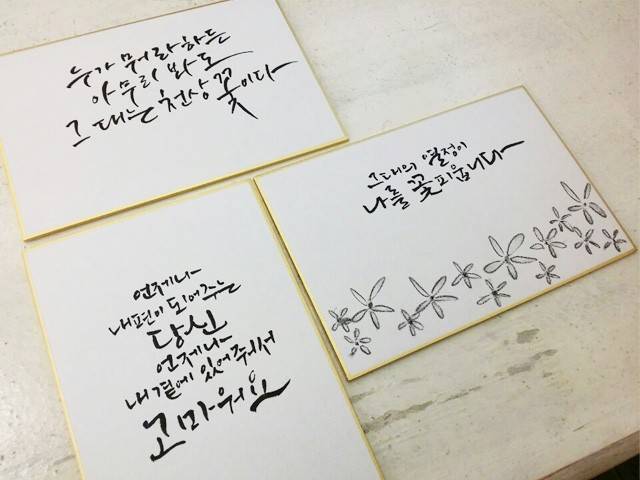 누가 뭐라하든
아무리 봐도
그대는 천상 꽃이다
그대의 열정이
나를 꽃피웁니다
언제나
내편이 되어주는
당신
언제나
내 곁에 있어줘서
고마워요